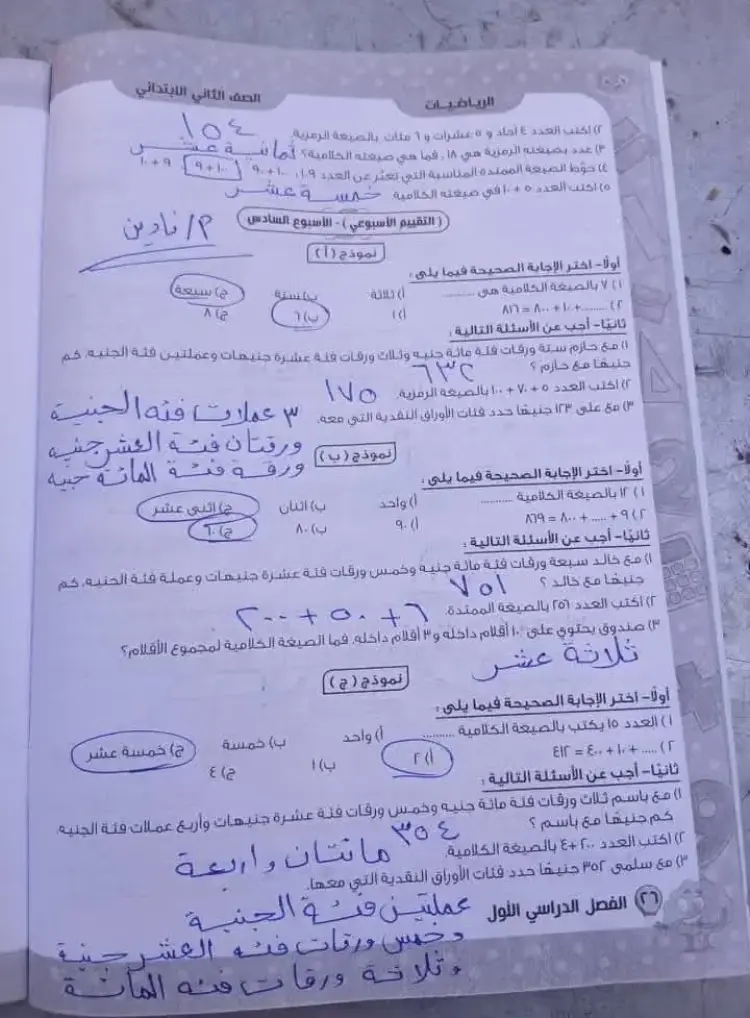 الرياضيات
الصف الثاني الابتدائي
٢) اكتب العدد ٤ آحاد و ٥ عشرات و ١ مئات بالصيغة الرمزية. ١٥٤
٣) عدد بصيغته الرمزية هي ١٨، فما هي صيغته الكلامية؟ ثمانية عشر
٤) حوّط الصيغة الممتدة المناسبة التي تعبّر عن العدد ١٠٩. ١٠٠+٩٠ ١٠٠+٩ ١٠+٩
٥) اكتب العدد ٥ + ١٠ في صيغته الكلامية خمسة عشر
(التقييم الأسبوعي) - الأسبوع السادس
م/ نادين
نموذج (أ)
أولًا- اختر الإجابة الصحيحة فيما يلي:
١) ٧ بالصيغة الكلامية هي .......... أ) ثلاثة ب) ستة ج) سبعة
٢) ..........+ ١٠ + ٨٠٠ = ٨١٦ أ) ١ ب) ٦ ج) ٨
ثانيًا- أجب عن الأسئلة التالية:
١) مع حازم ستة ورقات فئة مائة جنيه وثلاث ورقات فئة عشرة جنيهات وعملتين فئة الجنيه. كم
جنيهًا مع حازم؟ ٦٣٢
٢) اكتب العدد ٥ + ٧٠ + ١٠٠ بالصيغة الرمزية. ١٧٥
٣) مع علي ١٢٣ جنيهًا حدد فئات الأوراق النقدية التي معه. ٣ عملات فئه الجنية
ورقتان فئة العشر جنيه
ورقه فئة المائة جنيه
نموذج (ب)
أولًا- اختر الإجابة الصحيحة فيما يلي:
١) ١٢ بالصيغة الكلامية .......... أ) واحد ب) اثنان ج) اثنى عشر
٢) ٩ + ..... + ٨٠٠ = ٨٦٩ أ) ٩٠ ب) ٨٠ ج) ٦٠
ثانيًا- أجب عن الأسئلة التالية:
١) مع خالد سبعة ورقات فئة مائة جنيه وخمس ورقات فئة عشرة جنيهات وعملة فئة الجنيه. كم
جنيهًا مع خالد؟ ٧٥١
٢) اكتب العدد ٢٥٦ بالصيغة الممتدة. ٦ + ٥٠ + ٢٠٠
٣) صندوق يحتوي على ١٠ أقلام داخله و ٣ أقلام داخله. فما الصيغة الكلامية لمجموع الأقلام؟
ثلاثة عشر
نموذج (ج)
أولًا- اختر الإجابة الصحيحة فيما يلي:
١) العدد ١٥ يكتب بالصيغة الكلامية .......... أ) واحد ب) خمسة ج) خمسة عشر
٢) ..... + ١٠ + ٤٠٠ = ٤١٢ أ) ٢ ب) ١ ج) ٤
ثانيًا- أجب عن الأسئلة التالية:
١) مع باسم ثلاث ورقات فئة مائة جنيه وخمس ورقات فئة عشرة جنيهات وأربع عملات فئة الجنيه.
كم جنيهًا مع باسم؟ ٣٥٤
٢) اكتب العدد ٢٠٠ + ٤ بالصيغة الكلامية. مائتان و اربعة
٣) مع سلمى ٣٥٢ جنيهًا حدد فئات الأوراق النقدية التي معها.
عملتين فئة الجنية
وخمس ورقات فئه العشر جنية
وثلاثة ورقات فئه المائة
٢٦ الفصل الدراسي الأول